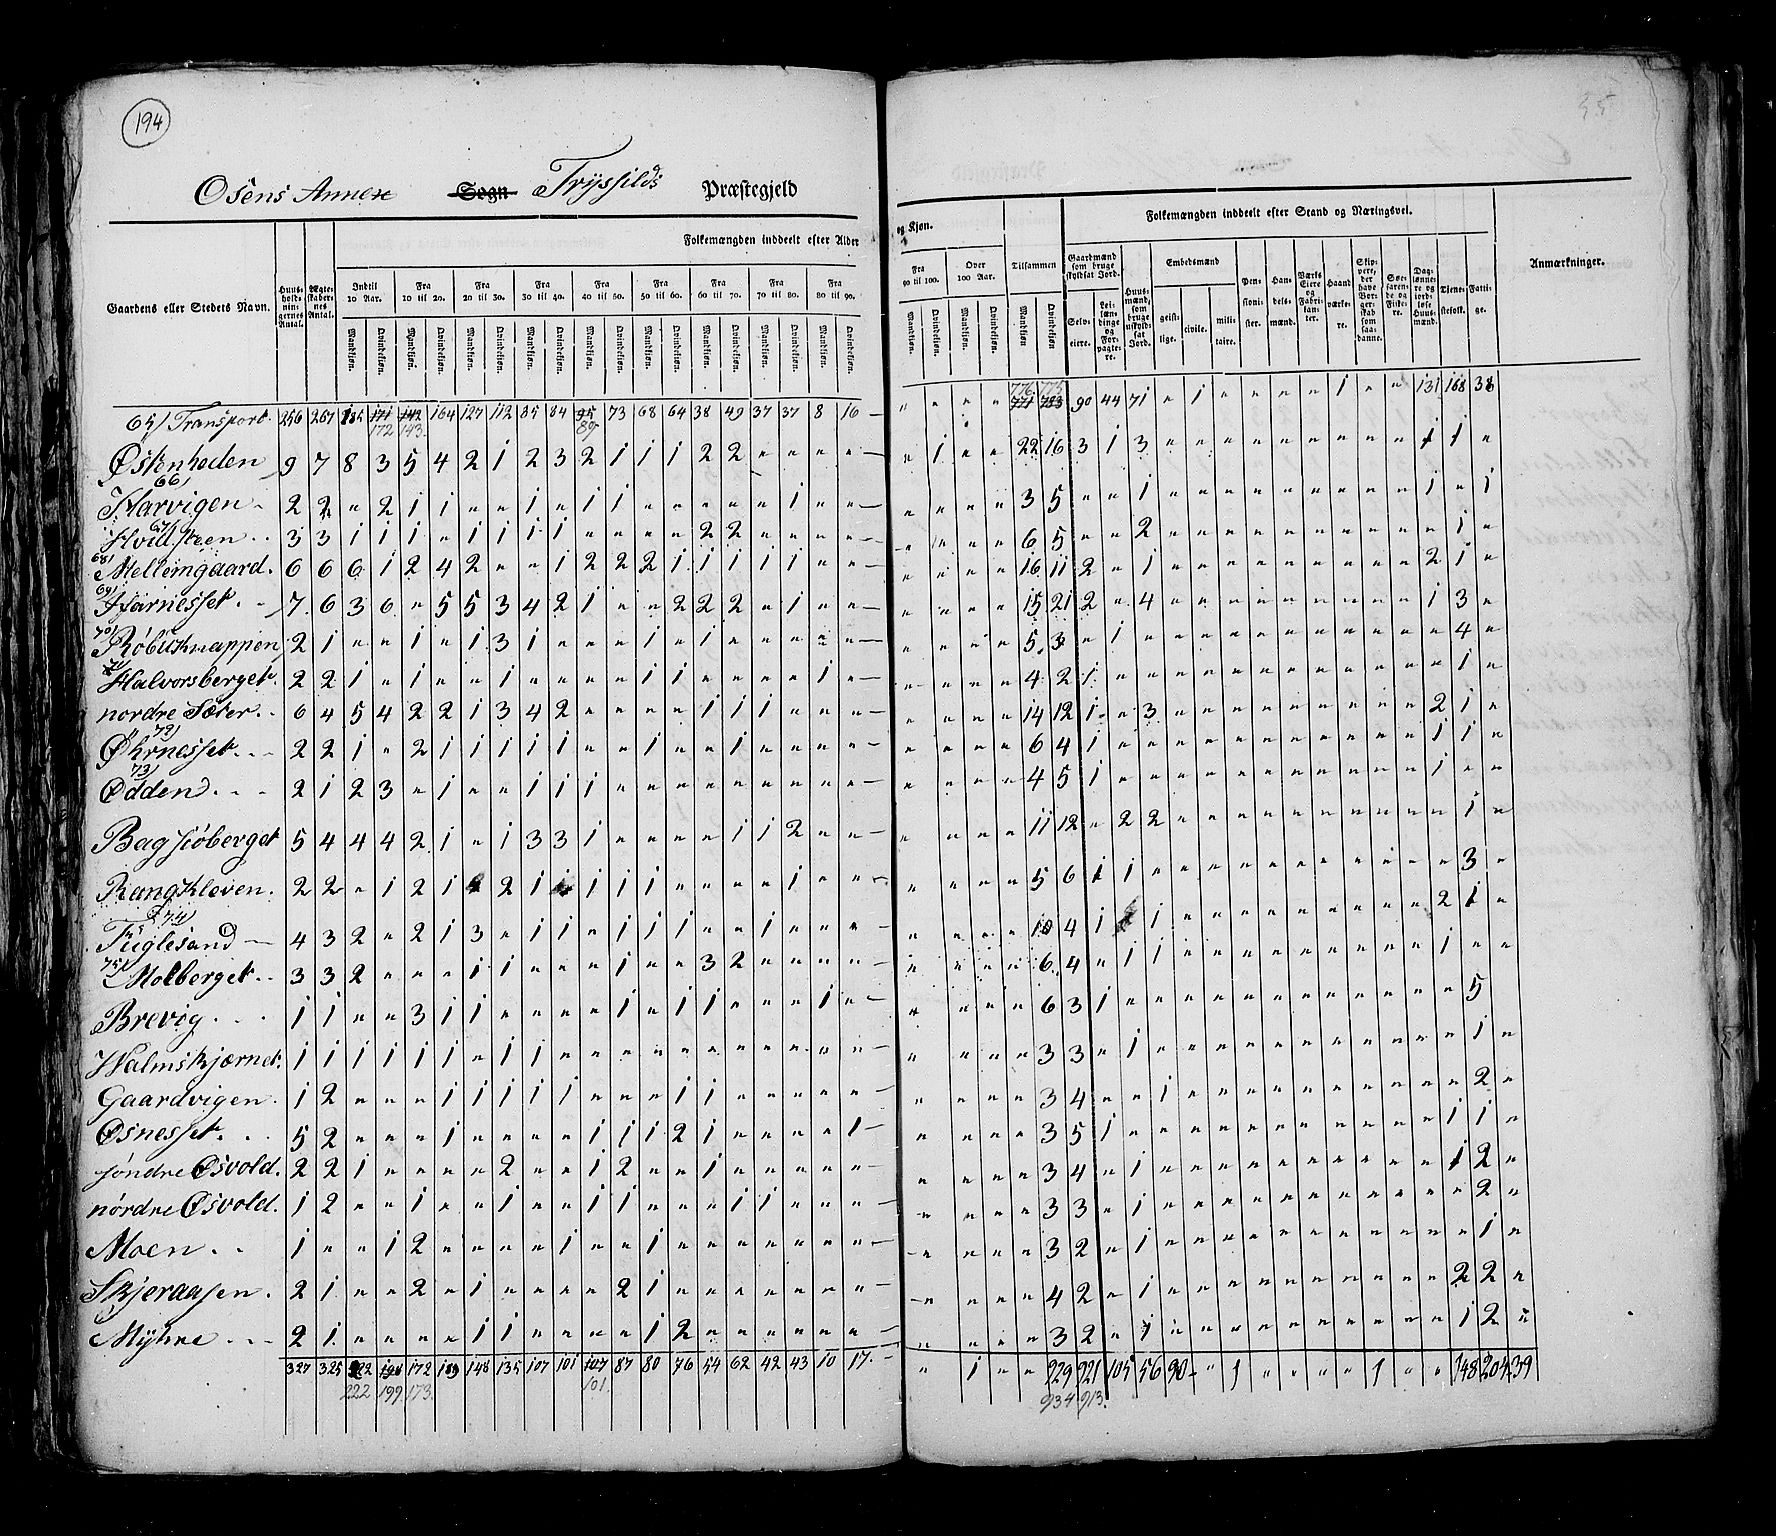 194
Osens Annex Sogn Tryssilds Præstegjeld
Folkemængden inddeelt efter Alder
og Kjøn.
Folkemængden inddeelt efter Stand og Næringsvei.
Gaardens eller Stedets Navn.
Huusholdningernes Antal.
Ægteskabernes Antal.
Indtil 10 Aar.
Fra 10 til 20.
Fra 20 til 30.
Fra 30 til 40.
Fra 40 til 50.
Fra 50 til 60.
Fra 60 til 70.
Fra 70 til 80.
Fra 80 til 90.
Fra 90 til 100.
Over 100 Aar.
Tilsammen
Mandkjøn. Qvindekjøn.
Gaardmænd som bruge skyldsat Jord.
Selveiere.
Leilændinge og Forpagtere.
Huusmænd, som bruge uskyldsat Jord.
Embedsmænd
geistlige. civile. militaire.
Pensionister.
Handelsmænd.
Værks Eiere og Fabrikanter.
Haandværkere.
Skippere, der have Borgerskab som saadanne.
Søefarende og Fiskere.
Daglønnere og jordløse Huusmænd.
Tjenestefolk.
Fattige.
Anmærkninger.
65/ Transport. 256 267 185 171 142 164 127 112 85 84 95 73 68 64 38 49 37 37 8 16 — " " " " 771 783 90 44 71 " 1 " " " " 1 " " 131 168 38
172 143. 89 776 775
Øsknheden 9 7 8 3 5 4 2 1 2 3 2 1 1 1 2 2 " " " " " 1 " " 22 16 3 1 3 " " " " " " " " " 1 1 "
66/
Harvigen 2 2 " 2 1 1 " " 1 " 1 1 " " " " " 1 " " " " " " 3 5 " " 1 " " " " " " " " " 1 " 1
67/
Hvidsteen 3 3 1 1 1 " 1 1 1 1 " " " " 2 2 " " " " " " " " 6 5 " " 2 " " " " " " " " " " 1 "
68/ Mellemgaard. 6 6 6 1 2 4 2 " " 1 2 2 2 1 1 1 1 1 " " " " " " 16 11 2 " 1 " " " " " " " " " 2 1 "
69/ Harnesset. 7 6 3 6 " 5 5 3 4 2 1 " " 2 2 2 " 1 " " " " " " 15 21 2 " 4 " " " " " " " " " 1 3 "
70/ Röbuknappen 2 1 " " 1 " 1 3 1 " " " 1 " 1 " " " " " " " " " 5 3 " 1 " " " " " " " " " " " 4 "
71/ Halvorsberget. 2 2 1 " 1 " " 1 " " " " 1 1 " " " " 1 " " " " " 4 2 1 " " " " " " " " " " " " 1 "
nordre Sæter. 6 4 5 4 2 2 1 3 4 2 " " " " 1 1 1 " " " " " " " 14 12 1 " 3 " " " " " " " " " 2 1 "
72/
Øhrnesset. 2 2 1 " 2 1 1 1 1 1 " " 1 " " 1 " " " " " " " " 6 4 1 " " " " " " " " " " " 1 1 "
73/
Odden. 2 1 2 3 " 1 " " 1 1 1 " " " " " " " " " " " " " 4 5 1 " " " " " " " " " " " 1 " "
Bagsjöberget 5 4 4 4 2 1 " 1 3 3 1 " " " " 1 1 2 " " " " " " 11 12 " 2 2 " " " " " " " " " " 1 "
Rangkleven. 2 2 " 1 2 1 2 1 1 1 1 " " " " 1 " " " " " " 5 6 1 1 " " " " " " " " " " " 3 "
74/
Fuglesand 4 3 2 " 2 1 3 " 1 1 " 1 1 1 " " 1 " " " " " " " 10 4 1 1 " " " " " " " " " 2 1 "
75/ Molberget. 3 3 2 " " " 1 1 " " " 1 " " 3 2 " " " " " " " " 6 4 " 1 1 " " " " " " " " " 1 " "
Brevig. 1 1 " " 3 1 1 " " " " 1 " 1 1 " " " 1 " " " " " 6 3 1 " " " " " " " " " " " " 5
Walmskjærnet. 1 1 1 1 1 1 " 1 1 " " " " " " " " " " " " " " " 3 3 " 1 " " " " " " " " " " " 1 "
Gaardvigen 1 2 " " " 1 1 1 1 1 " " " 1 1 " " " " " " " " " 3 4 " " 1 " " " " " " " " " " 2 "
Øsnesset. 5 2 " " " 1 " " " " 1 1 1 2 1 " " " " 1 " " " " 3 5 1 " " " " " " " " " " " 1 1 "
söndre Øsvold. 2 2 1 " " " " 2 " " 1 2 " " 1 " " " " " " " " " 3 4 " 1 " " " " " " " " " " 1 2 "
nórdre Øsvold. 1 2 " " 1 " " 1 " " 1 1 " " " 1 1 " " " " " " " 3 3 " 1 " " " " " " " " " " " 2 "
Moen. 1 " " 1 2 " " " " 1 " " 1 " " " " " " " " " " " 3 2 " 1 " " " " " " " " " " " 1 "
Skjeraasen. 2 1 " " 2 " 1 " " " " 2 1 " " " " " " " " " " " 4 2 " 1 " " " " " " " " " " 2 2 "
Myhre 2 1 " " " " 1 1 " " " " 1 2 " " " " " " " " " " 3 2 " 1 " " " " " " " " " " 1 2 "
327 325 222 198 172 189 148 135 107 101 107 87 80 76 54 62 42 43 10 17. " 1 " " 929 921 105 56 90 " " 1 " " " " 1 " " 148 204 39
222 199 173. 101. 934 913.